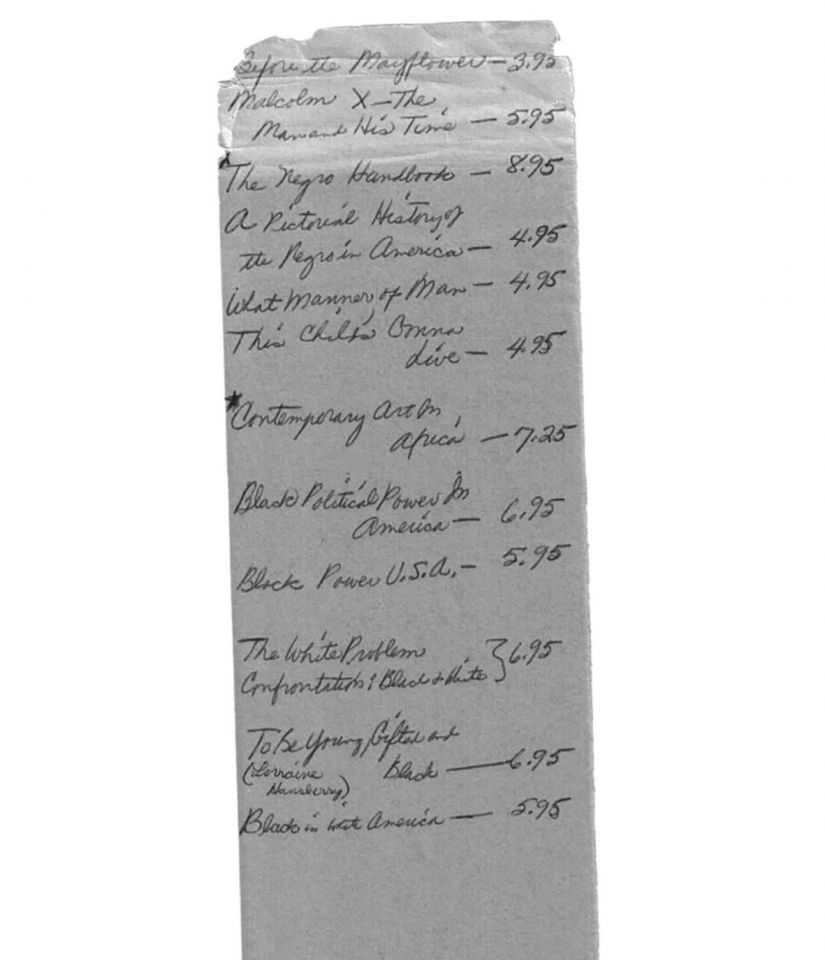 Before the Mayflower — 3.95
Malcolm X — The
Man and His Time — 5.95
The Negro Handbook — 8.95
A Pictorial History of
the Negro in America — 4.95
What Manner of Man — 4.95
This Child's Gonna
Live — 4.95
*Contemporary Art In
Africa — 7.25
Black Political Power In
America — 6.95
Black Power U.S.A. — 5.95
The White Problem
Confrontation: Black & White } 6.95
To Be Young, Gifted and
(Lorraine Black — 6.95
Hansberry)
Blacks in White America — 5.95